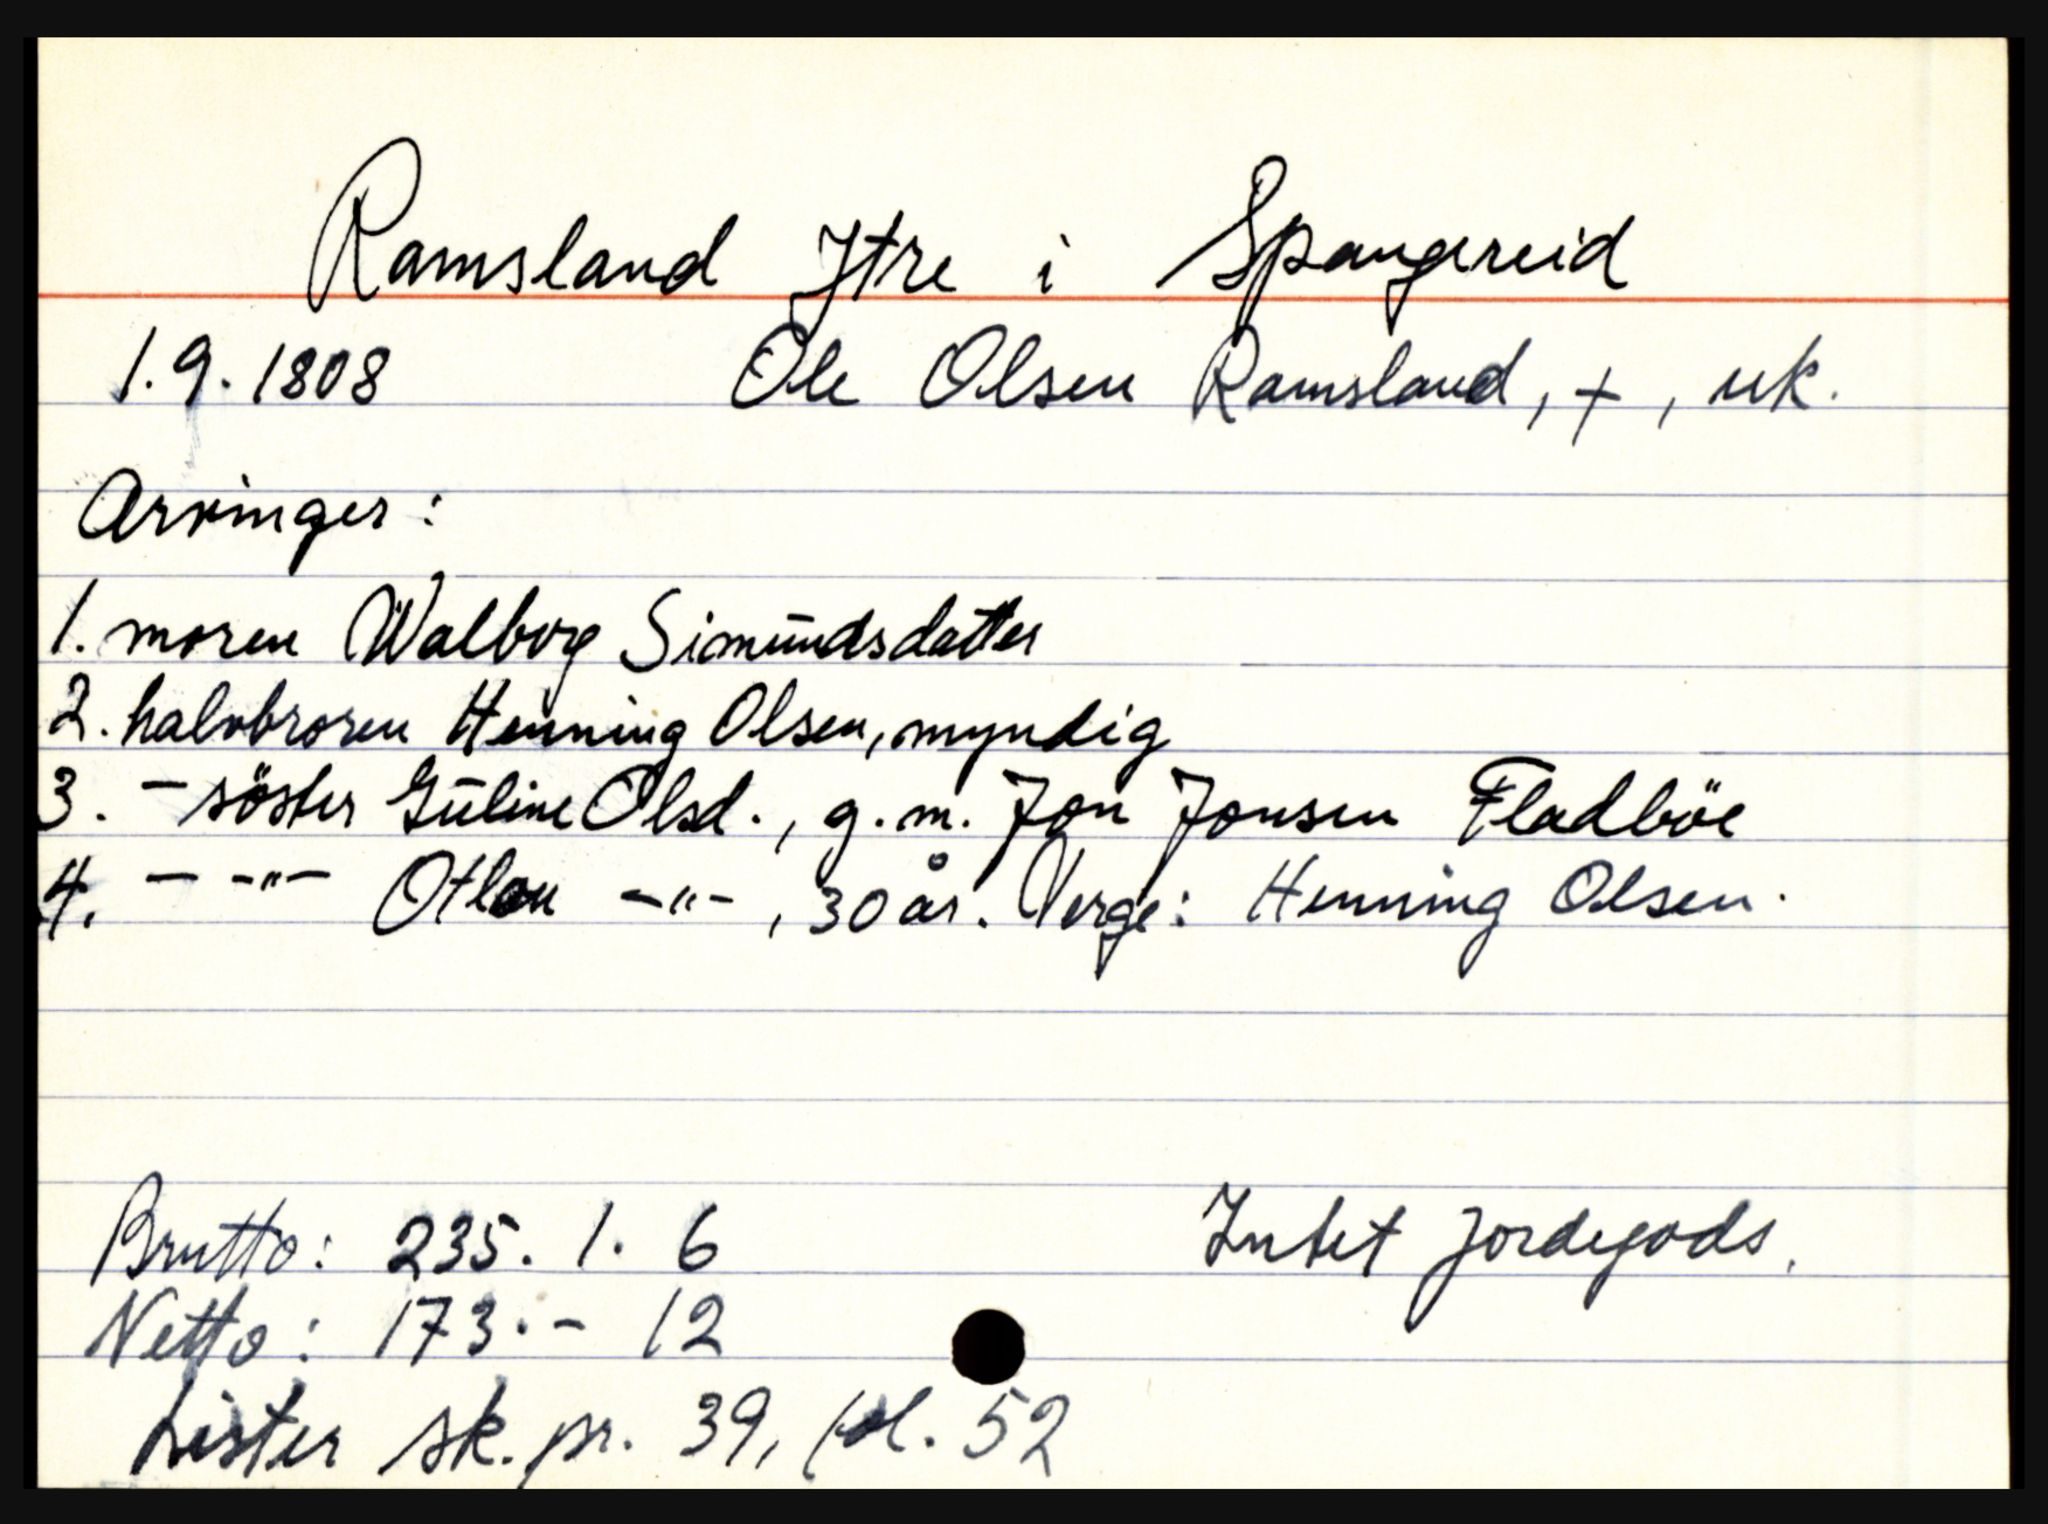 Ramsland Ytre i Spangereid
1.9.1808 Ole Olsen Ramsland, +, uk.
Arvinger:
1. moren Walborg Simundsdatter
2. halvbroren Henning Olsen, myndig
3. - söster Güline Olsd., g.m. Jon Jonsen Fladböe
4. - -"- -"-, 30 år. Verge: Henning Olsen.
Brutto: 235. 1. 6 Intet jordegods.
Netto: 173. - 12
Lister sk. pr. 39, fol. 52